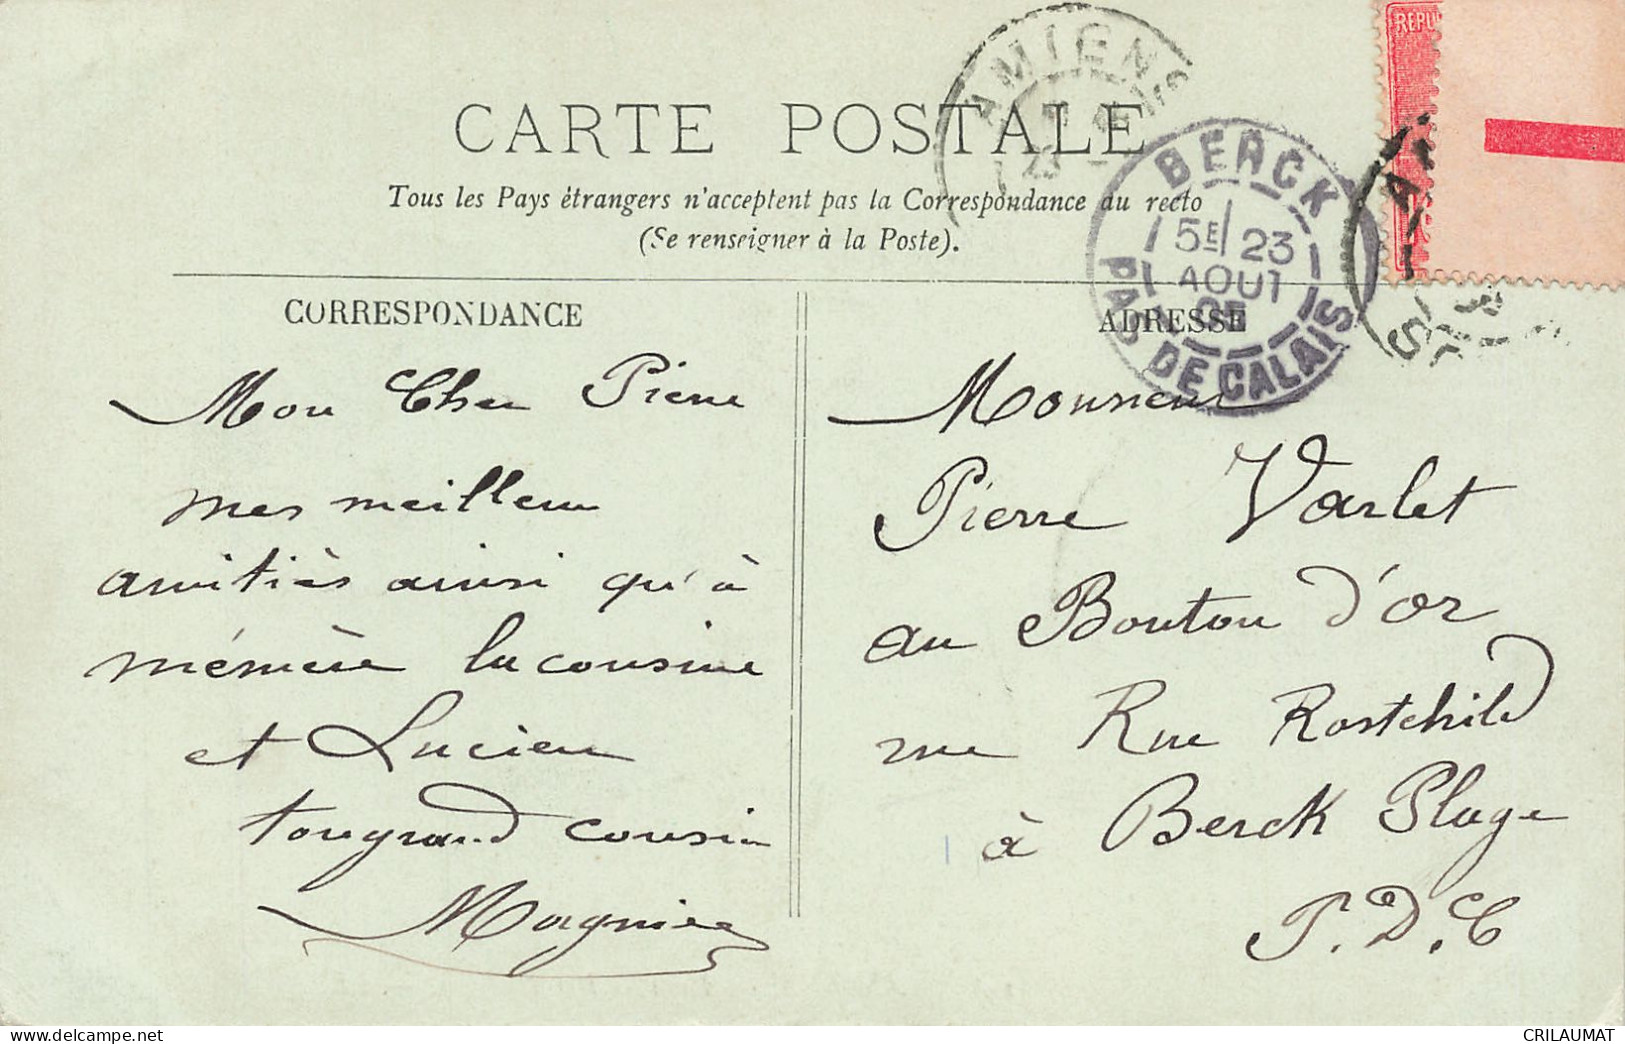 CARTE POSTALE
Tous les Pays étrangers n'acceptent pas la Correspondance au recto
(Se renseigner à la Poste).
AMIENS
23
BERCK
5E 23
AOUT
05
PAS DE CALAIS
REPU
CORRESPONDANCE
Mon Cher Pierre
mes meilleurs
amitiès ainsi qu'à
mémère la cousine
et Lucien
ton grand cousin
Magnier
ADRESSE
Monsieur
Pierre Varlet
au Bouton d'or
rue Rue Rostchild
à Berck Plage
P. D. C
CRILAUMAT